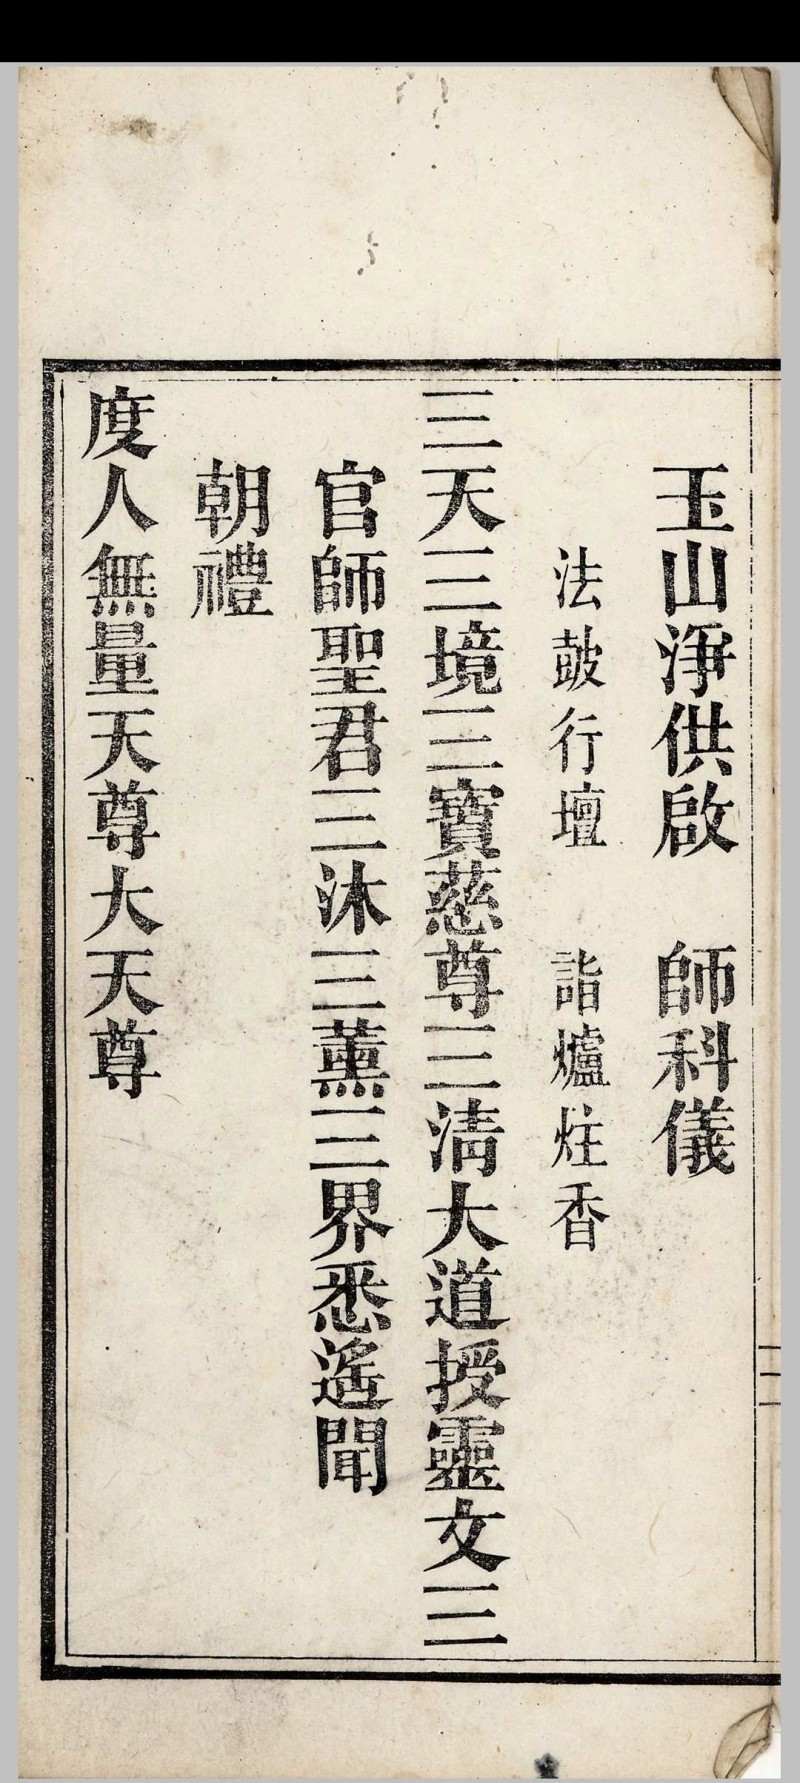 玉山淨供啟　師科儀
法皷行壇　詣爐炷香
三天三境三寶慈尊三淸大道授靈文三
官師聖君三沐三薰三界悉遙聞
朝禮
度人無量天尊大天尊